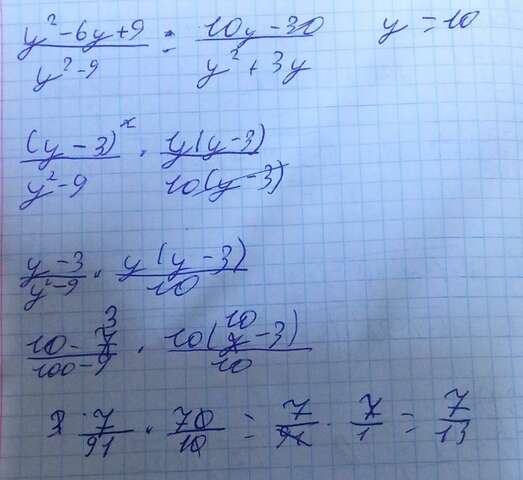 (y² - 6y + 9)/(y² - 9) : (10y - 30)/(y² + 3y) y = 10
(y - 3)²/(y² - 9) · y(y - 3)/10(y - 3)
(y - 3)/(y² - 9) · y(y - 3)/10
(10 - 3)/(100 - 9) · 10(10 - 3)/10
7/91 · 70/10 = 7/91 · 7/1 = 7/13